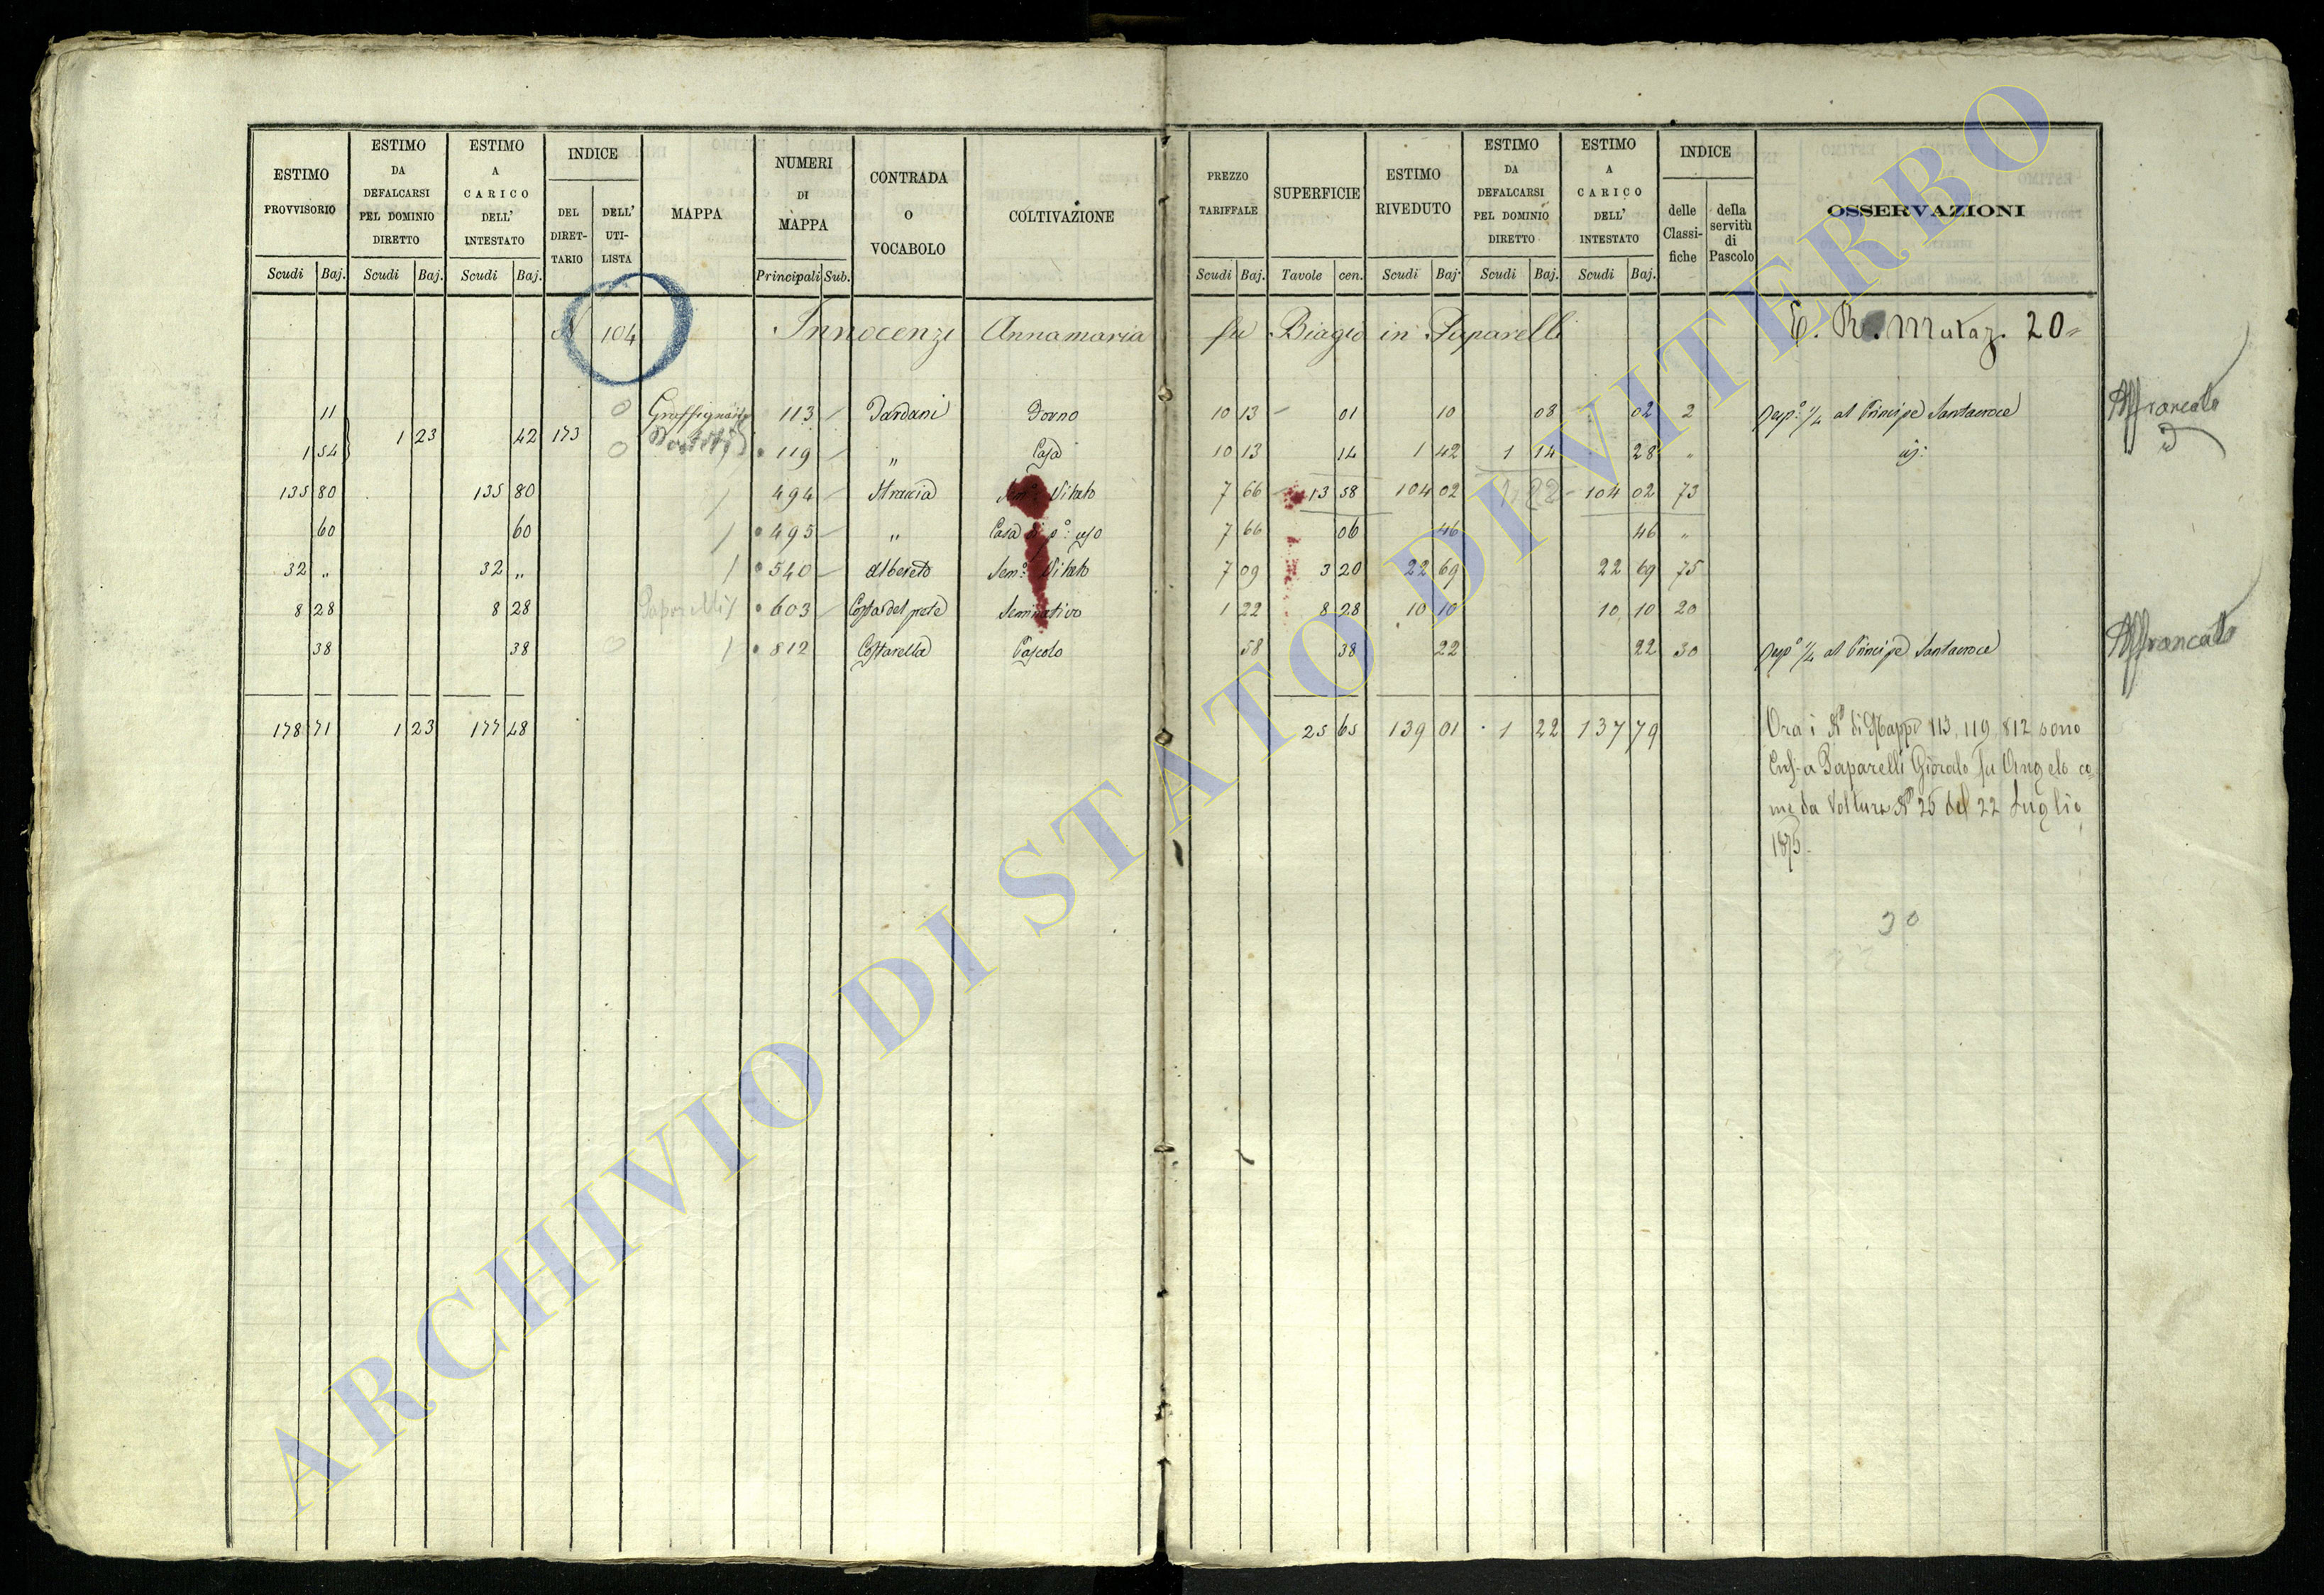 ESTIMO PROVVISORIO
Scudi Baj.
ESTIMO DA DEFALCARSI PEL DOMINIO DIRETTO
Scudi Baj.
ESTIMO A CARICO DELL' INTESTATO
Scudi Baj.
INDICE
DEL DIRET-TARIO
DELL' UTI-LISTA
MAPPA
NUMERI DI MAPPA
Principali Sub.
CONTRADA O VOCABOLO
COLTIVAZIONE
PREZZO TARIFFALE
Scudi Baj.
SUPERFICIE
Tavole cen.
ESTIMO RIVEDUTO
Scudi Baj.
ESTIMO DA DEFALCARSI PEL DOMINIO DIRETTO
Scudi Baj.
ESTIMO A CARICO DELL' INTESTATO
Scudi Baj.
INDICE
delle Classi-fiche
della servitù di Pascolo
OSSERVAZIONI
N 104 Innocenzi Annamaria fu Biagio in Paparelli E. R. Mutaz. 20
11 Graffignano 113 Dardani Forno 10 13 01 10 08 02 2 Resp.e ¼ al Principe Santacroce Affrancato
1 23 42 173
1 54 119 " Casa 10 13 14 1 42 1 14 28 " id: id
135 80 135 80 494 Straccia Sem.o Vitato 7 66 13 58 104 02 1,22 104 02 73
60 60 495 " Casa di p.o uso 7 66 06 46 46 "
32 " 32 " 540 Albereto Sem.o Vitato 7 09 3 20 22 69 22 69 75
8 28 8 28 Paparelli 603 Costa del prete Seminativo 1 22 8 28 10 10 10 10 20
38 38 812 Costarella Pascolo 58 38 22 22 30 Resp.e ¼ al Principe Santacroce Affrancato
178 71 1 23 177 48 25 65 139 01 1 22 137 79
Ora i No di Mappa 113, 119, 812 sono
a Paparelli fu Angelo co-
me da Voltura No 25 del 22 Luglio
1875.
30
ARCHIVIO DI STATO DI VITERBO